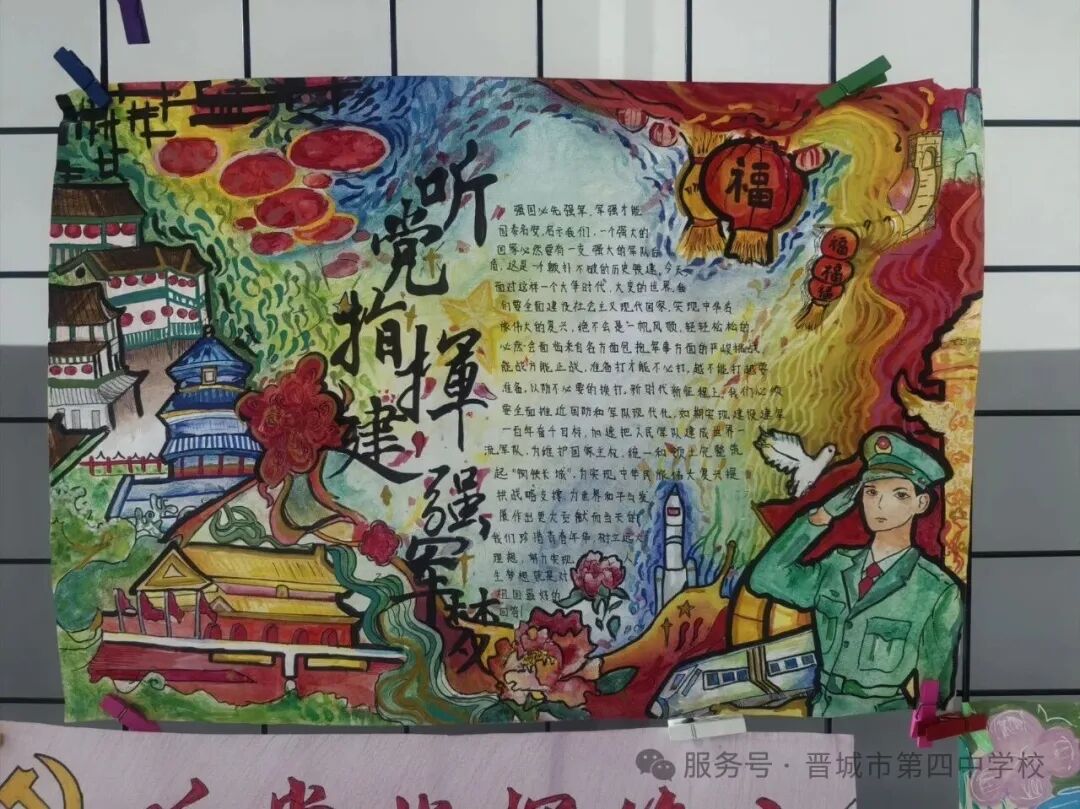 听党指揮
建强军梦
福
福
福
强国必先强军，军强才能
国泰民安，启示我们，一个强大的
国家必然要有一支强大的军队后
盾，这是一个颠扑不破的历史铁律，今天
面对这样一个大争时代，大变的世界，我
们要全面建设社会主义现代国家，实现中华民
族伟大的复兴，绝不会是一帆风顺，轻轻松松的，
必然会面临来自各方面包括军事方面的严峻挑战，
能战方能止战，准备打才能不必打，越不能打越要
准备，以防不必要的挨打，新时代新征程上，我们必须
要全面推进国防和军队现代化，如期实现建设建军
一百年奋斗目标，加速把人民军队建成世界一
流军队，为维护国家主权，统一和领土完整筑
起“钢铁长城”，为实现中华民族伟大复兴提
供战略支撑，为世界和平与发
展作出更大贡献而当今的
我们珍惜青春年华，树立远大
理想，努力实现人
生梦想就是对
祖国最好的
回答！
服务号·晋城市第四中学校